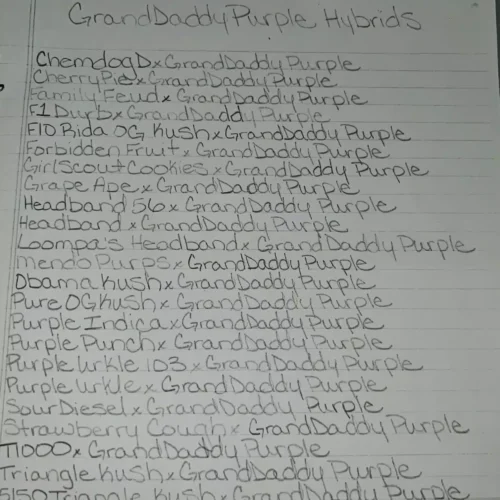 GrandDaddyPurple Hybrids
ChemdogDxGrandDaddyPurple
CherryPiexGrandDaddyPurple
Family FeudxGrandDaddyPurple
F1DurbxGrandDaddyPurple
FlORida OG KushxGrandDaddyPurple
Forbidden FruitxGrandDaddyPurple
GirlScoutCookiesxGrandDaddyPurple
Grape ApexGrandDaddyPurple
Headband 56xGrandDaddyPurple
HeadbandxGrandDaddyPurple
Loompa's HeadbandxGrandDaddyPurple
Mendo PurpsxGrandDaddyPurple
Obama KushxGrandDaddyPurple
Pure OGKushxGrandDaddyPurple
Purple IndicaxGrandDaddyPurple
Purple PunchxGrandDaddyPurple
Purple Urkle 103xGrandDaddyPurple
Purple UrklexGrandDaddyPurple
SourDieselxGrandDaddyPurple
Strawberry CoughxGrandDaddyPurple
T1000xGrandDaddyPurple
Triangle KushxGrandDaddyPurple
5150Triangle KushxGrandDaddyPurple